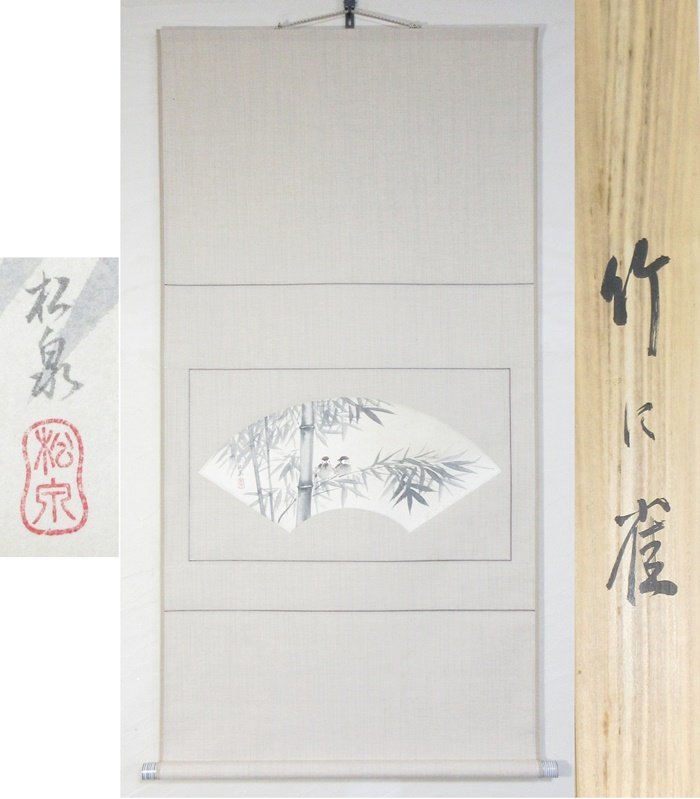 松泉
松泉
竹に雀